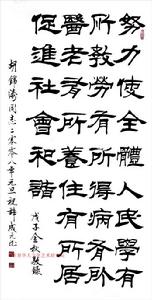 努力使全體人民學有
所教勞有所得病有所
醫老有所養住有所居
促進社會和諧 戊子金秋敬錄
胡錦濤同志二零零八年元旦祝辭